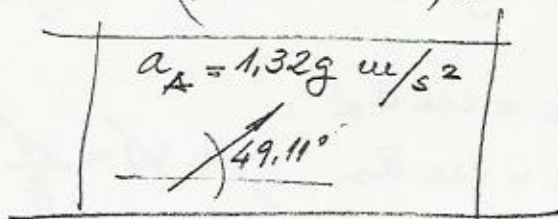 a_A = 1,32g m/s²
49,11°